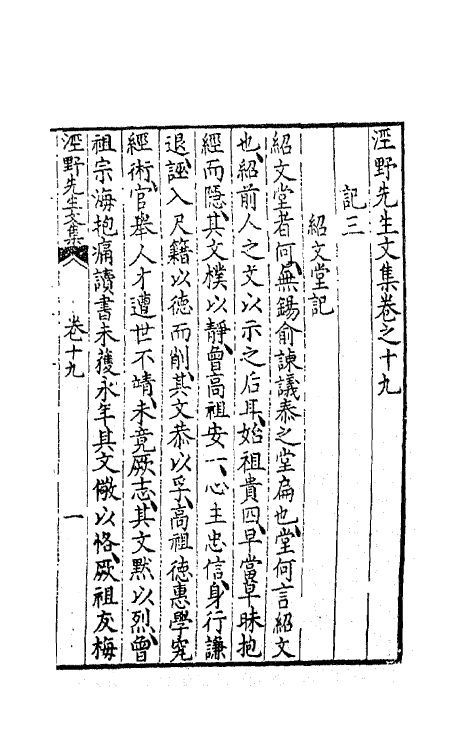 涇野先生文集卷之十九
記三
紹文堂記
紹文堂者何無錫俞諫議泰之堂扁也堂何言紹文
也紹前人之文以示之后耳始祖貴四早當草昧抱
經而隱其文樸以靜曾高祖安一心主忠信身行謙
退誣入尺籍以德而削其文恭以孚高祖德惠學究
經術官舉人才遭世不靖未竟厥志其文默以烈曾
祖宗海抱痛讀書未獲永年其文儆以恪厥祖友梅
涇野先生文集 卷十九 一